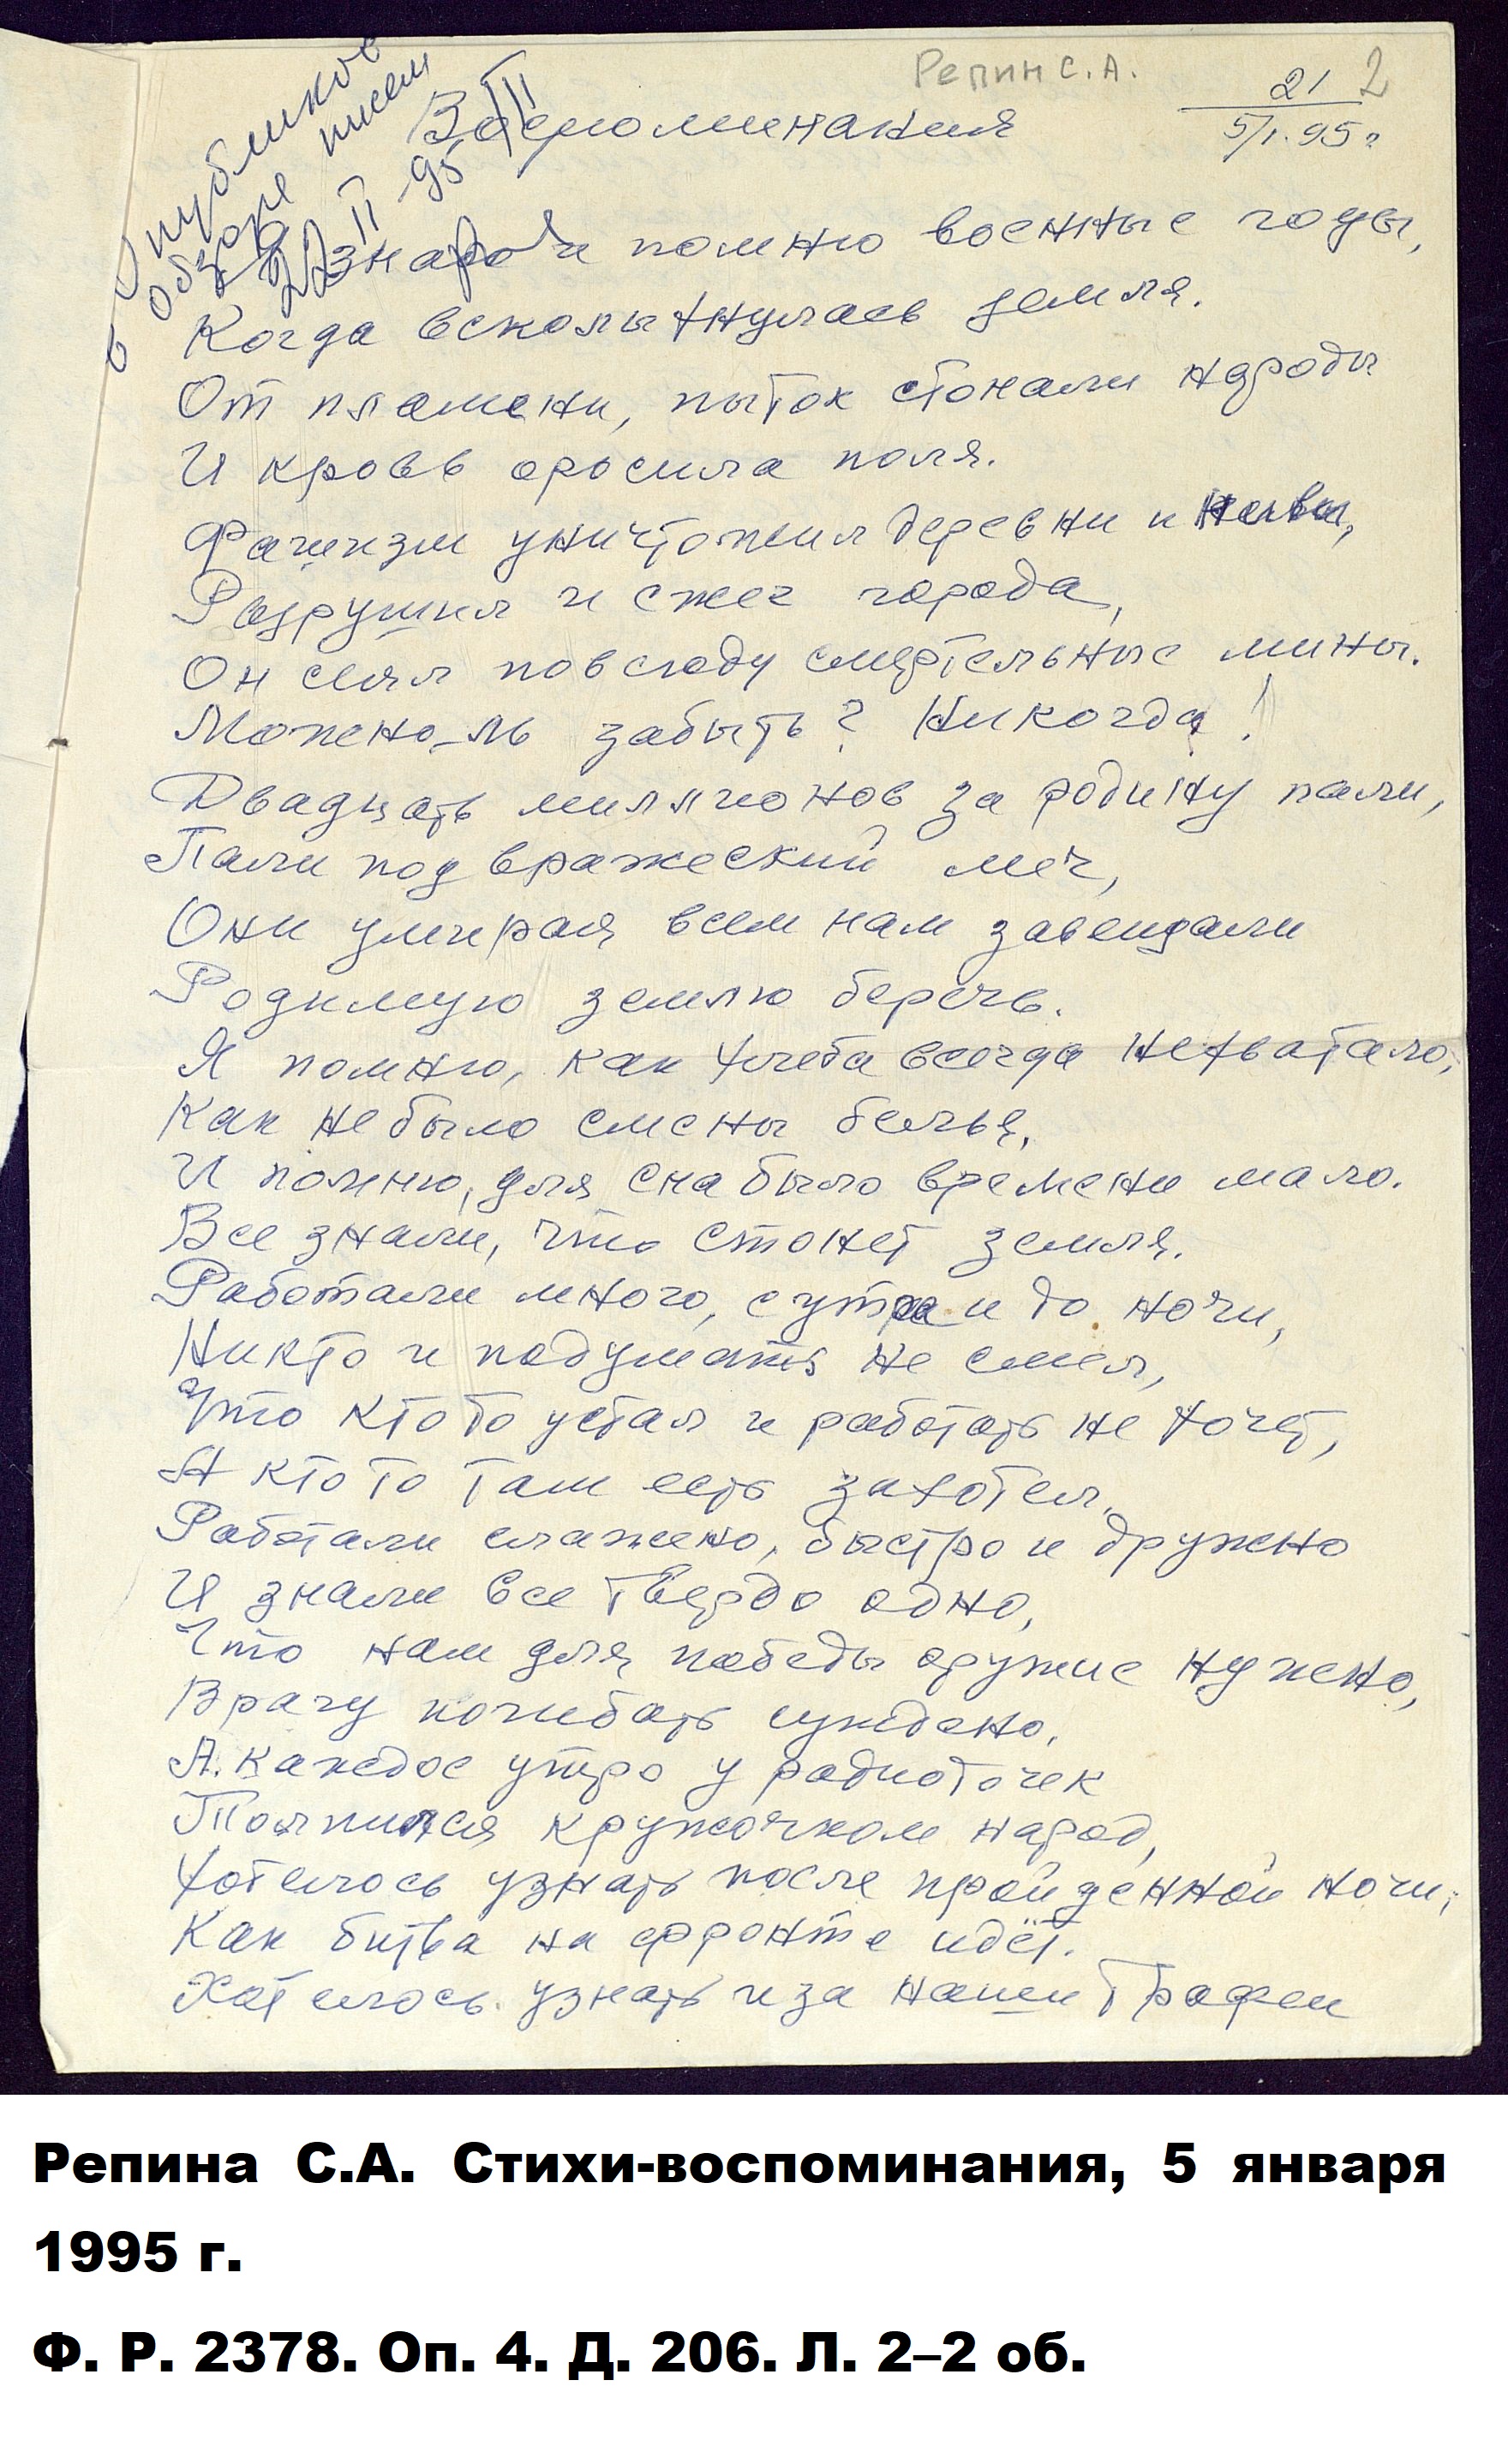 Репин С.А.
21 2
5/I.95 г
Опубликов
в обзоре писем
22 II 95
III
Воспоминания
Я знаю и помню военные годы,
Когда всколыхнулась земля.
От пламени, пыток стонали народы
И кровь оросила поля.
Фашизм уничтожил деревни и нивы,
Разрушил и сжег города,
Он сеял повсюду смертельные мины.
Можно-ль забыть? Никогда!
Двадцать миллионов за родину пали,
Пали под вражеский меч,
Они умирая всем нам завещали
Родимую землю беречь.
Я помню, как хлеба всегда нехватало,
Как небыло смены белья,
И помню, для сна было времени мало.
Все знали, что стонет земля.
Работали много, с утра и до ночи,
Никто и подумать не смел,
Что кто то устал и работать не хочет,
А кто то там есть захотел.
Работали слажено, быстро и дружно
И знали все твердо одно,
Что нам для победы оружие нужно,
Врагу погибать суждено.
А каждое утро у радиоточек
Толпился кружочком народ,
Хотелось узнать после пройденной ночи,
Как битва на фронте идёт.
Хотелось узнать и за наши трофеи
Репина С.А. Стихи-воспоминания, 5 января
1995 г.
Ф. Р. 2378. Оп. 4. Д. 206. Л. 2–2 об.